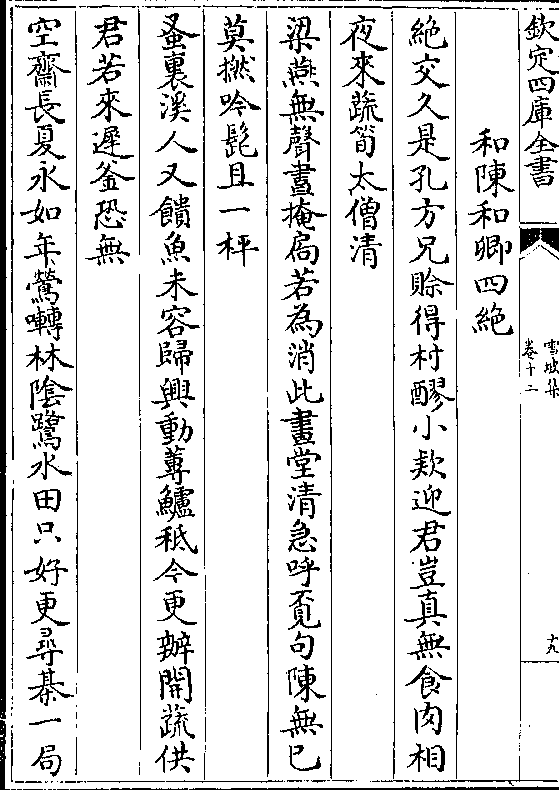 欽定四庫全書
雪坡集
卷十二
十九
和陳和卿四絶
絶交久是孔方兄賖得村醪小欵迎君豈真無食肉相
夜來蔬筍太僧清
梁燕無聲晝掩扃若為消此晝堂清急呼覔句陳無已
莫撚吟髭且一枰
蚤裏溪人又饋魚未容歸興動蓴鱸秪今更辦開蔬供
君若來遲釜恐無
空齋長夏永如年鶯囀林隂鷺水田只好更尋棊一局